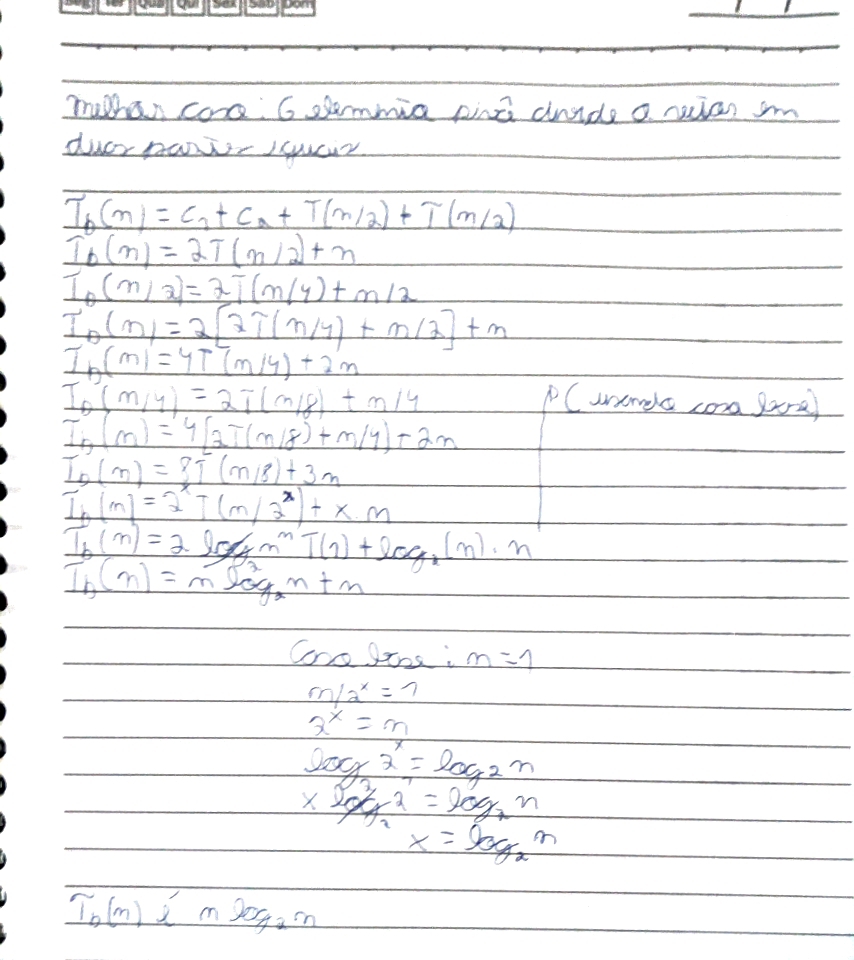 Seg Ter Qua Qui Sex Sáb Dom
Melhor caso: O elemento pivô divide o vetor em
duas partes iguais
T_b(n) = C_1 + C_2 + T(n/2) + T(n/2)
T_b(n) = 2T(n/2) + n
T_b(n/2) = 2T(n/4) + n/2
T_b(n) = 2[2T(n/4) + n/2] + n
T_b(n) = 4T(n/4) + 2n
T_b(n/4) = 2T(n/8) + n/4
P( usando caso base)
T_b(n) = 4[2T(n/8) + n/4] + 2n
T_b(n) = 8T(n/8) + 3n
T_b(n) = 2^x T(n/2^x) + x.n
T_b(n) = 2 log n^n T(1) + log_2(n).n
T_b(n) = n log_2 n + n
Caso base: n = 1
n/2^x = 1
2^x = n
log 2^x = log_2 n
x log_2 2 = log_2 n
x = log_2 n
T_b(n) é n log_2 n